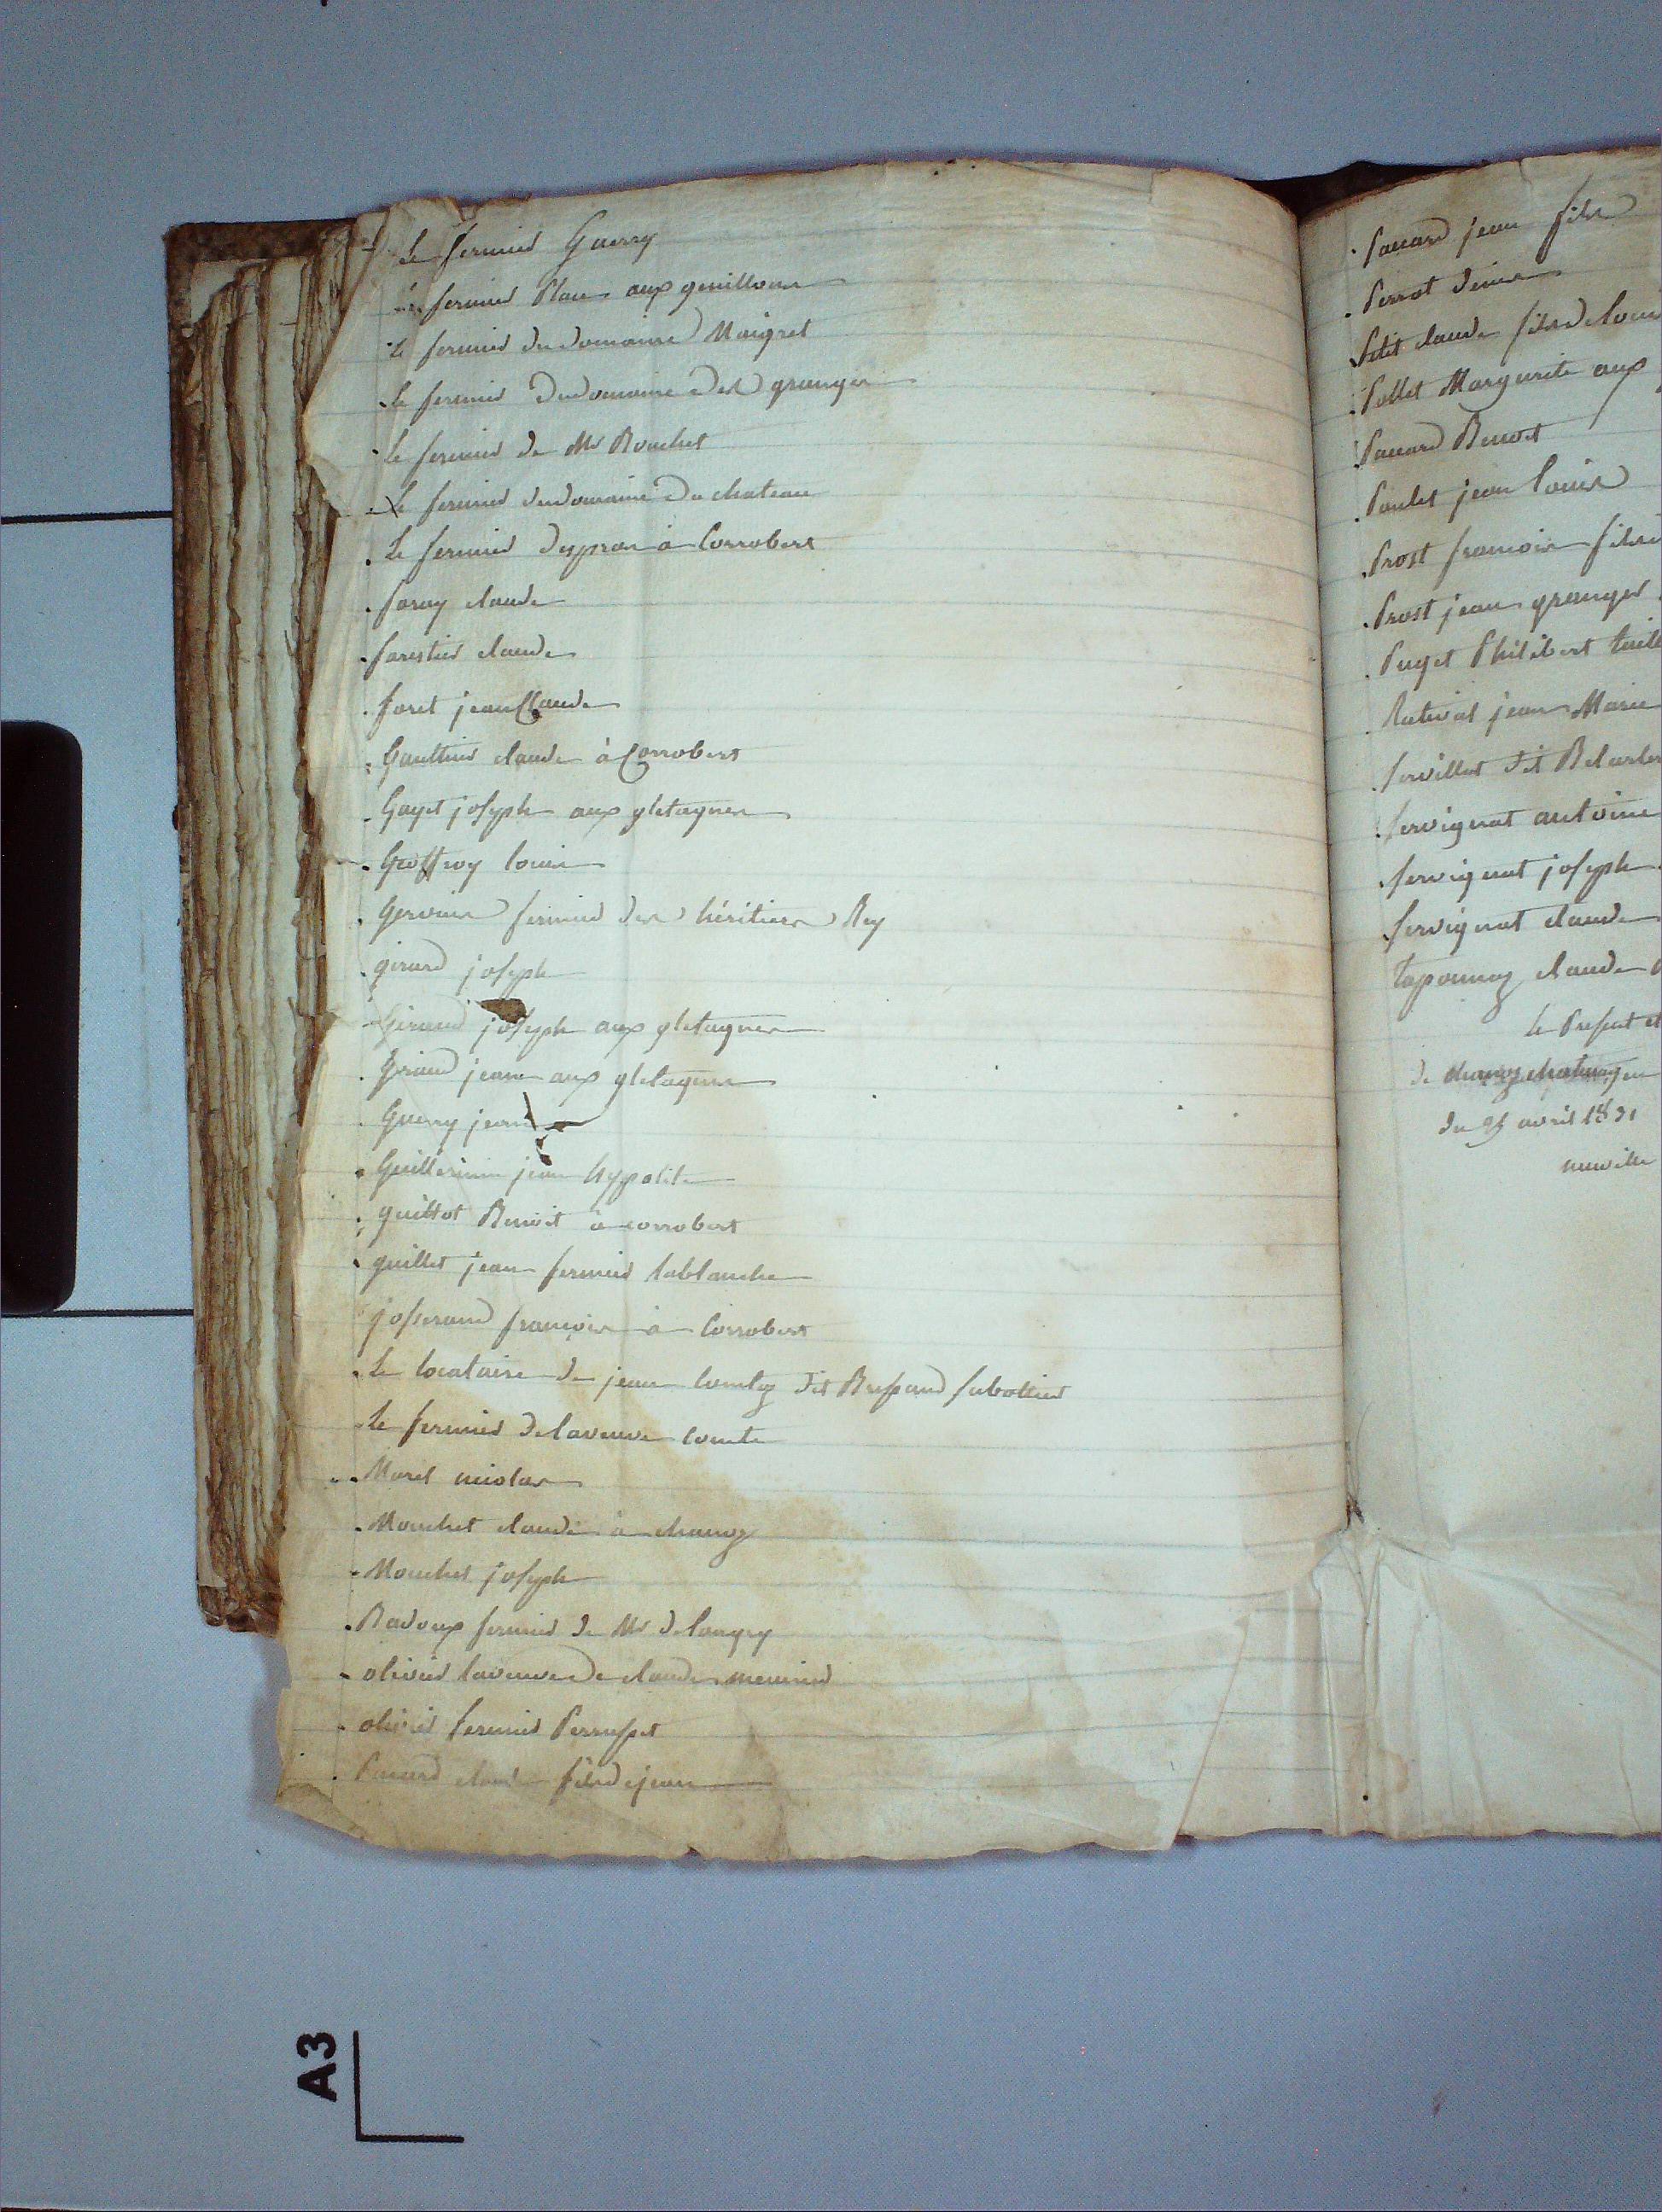 Le fermier Guerry
Le fermier Place aux genillons
Le fermier du domaine Maigret
Le fermier du domaine des granges
Le fermier de Mr Bouchet
Le fermier du domaine du chateau
Le fermier despras à Corrobert
foray claude
forestier claude
foret jean Claude
Gauthier claude à Corrobert
Gayet joseph aux gletagnes
Geoffroy louis
Gervais fermier des héritiers Rey
girard joseph
Giraud joseph aux gletagnes
Giraud jean aux gletagnes
Guerry jean
Guillermin jean hypolite
guillot Benoit à corrobert
guillet jean fermier lablanche
josserand françois à Corrobert
Le locataire de jean comtez dit Bressand sabottier
Le fermier de la veuve comte
Morel nicolas
Mouchet claude à chanoz
Mouchet joseph
Radoux fermier de Mr delangry
olivier la veuve de claude meunier
olivier fermier Perrusset
Pauard claude fils de jean
Pauard jean fils
Perrot denis
Petit claude fils de louis
Pollet Marguerite aux
Pauard Benoit
Poulet jean louis
Prost francois fils
Prost jean granger
Puget Philibert taill
Rativat jean Marie
servillat dit Belarbr
servignat antoine
servignat joseph
servignat claude
taponnaz claude
Le Present et
de chanoz chatenay en
du 25 avril 1831
neuville